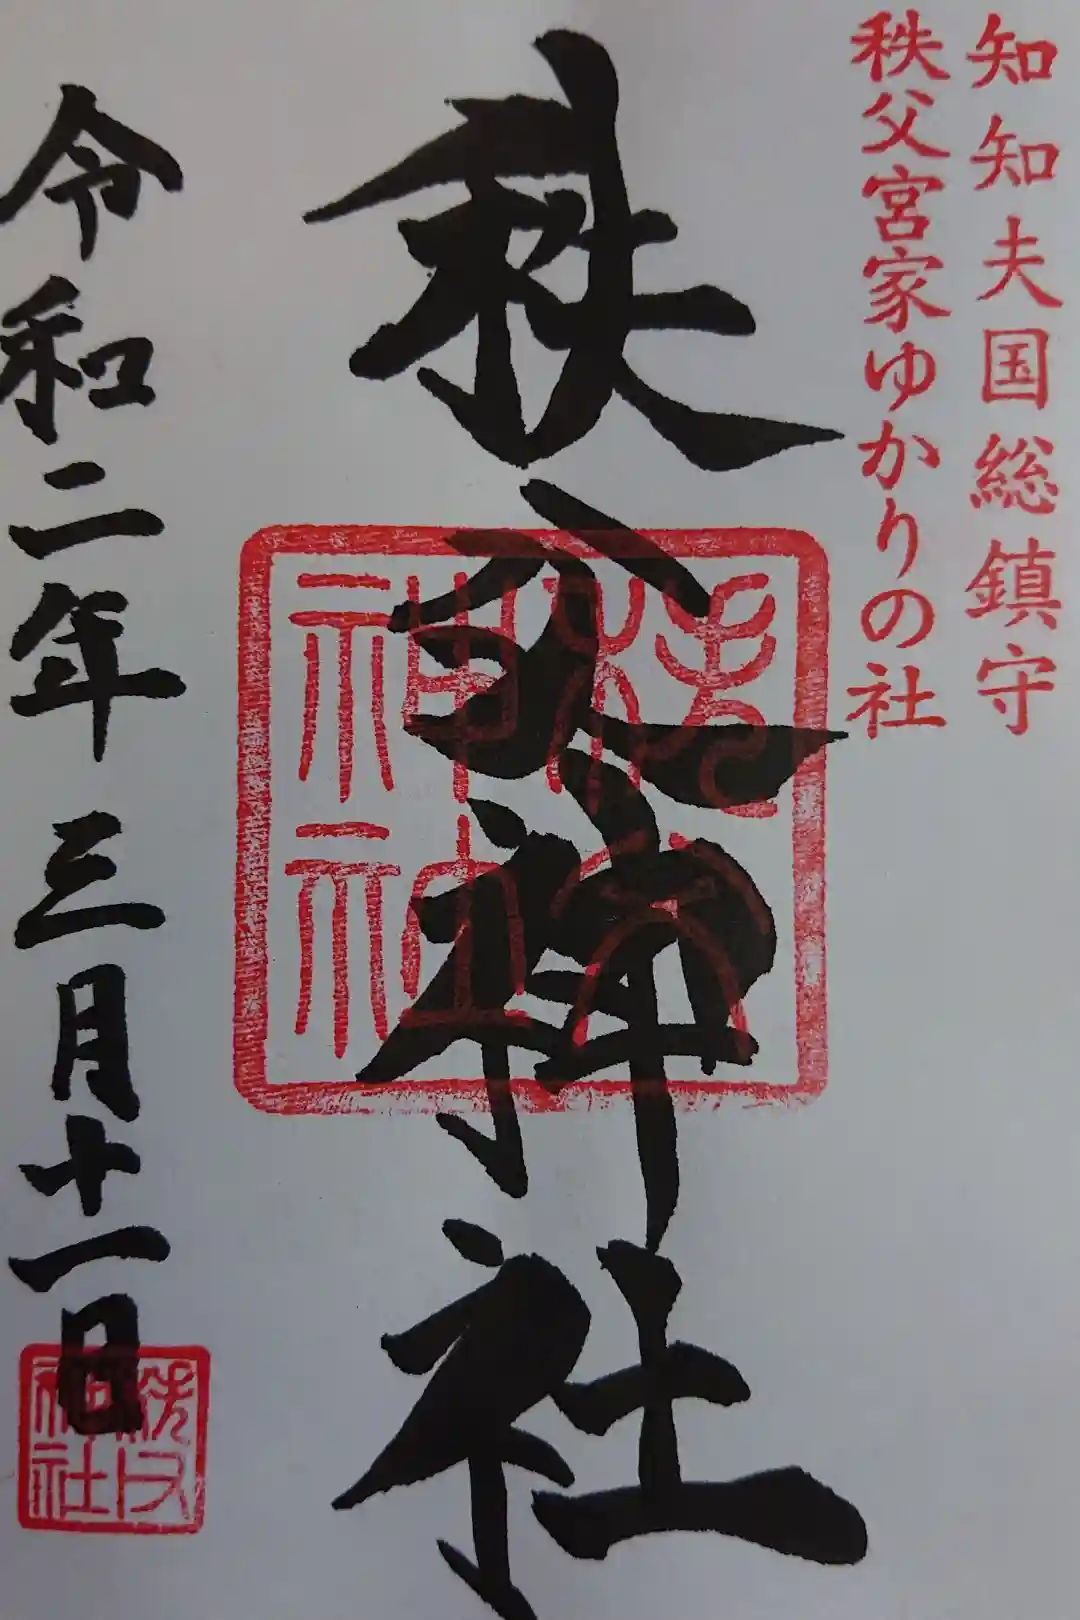 知知夫国総鎮守
秩父宮家ゆかりの社
秩父神社
秩父神社
令和二年三月十一日
秩父神社